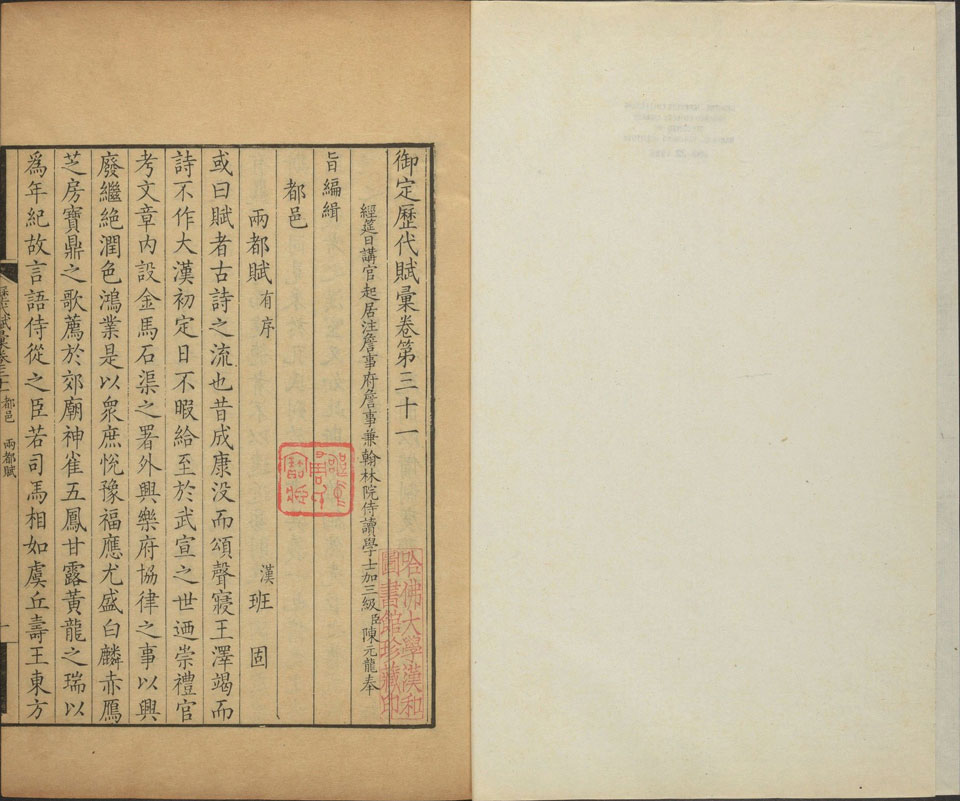 御定歷代賦彙卷第三十一
經筵日講官起居注詹事府詹事兼翰林院侍讀學士加三級臣陳元龍奉
旨編緝
都邑
兩都賦有序
漢班固
或曰賦者古詩之流也昔成康没而頌聲寢王澤竭而
詩不作大漢初定日不暇給至於武宣之世迺崇禮官
考文章内設金馬石渠之署外興樂府協律之事以興
廢繼絕潤色鴻業是以衆庶悅豫福應尤盛白麟赤鴈
芝房寶鼎之歌薦於郊廟神雀五鳳甘露黃龍之瑞以
為年紀故言語侍從之臣若司馬相如虞丘壽王東方
歷代賦彙卷三十一 都邑 兩都賦
一
哈佛大學漢和
圖書館珍藏印